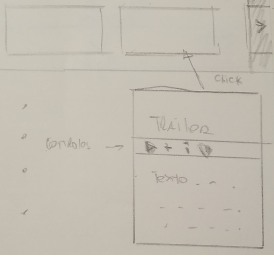 CLICK
TRáiler
Controles
Texto